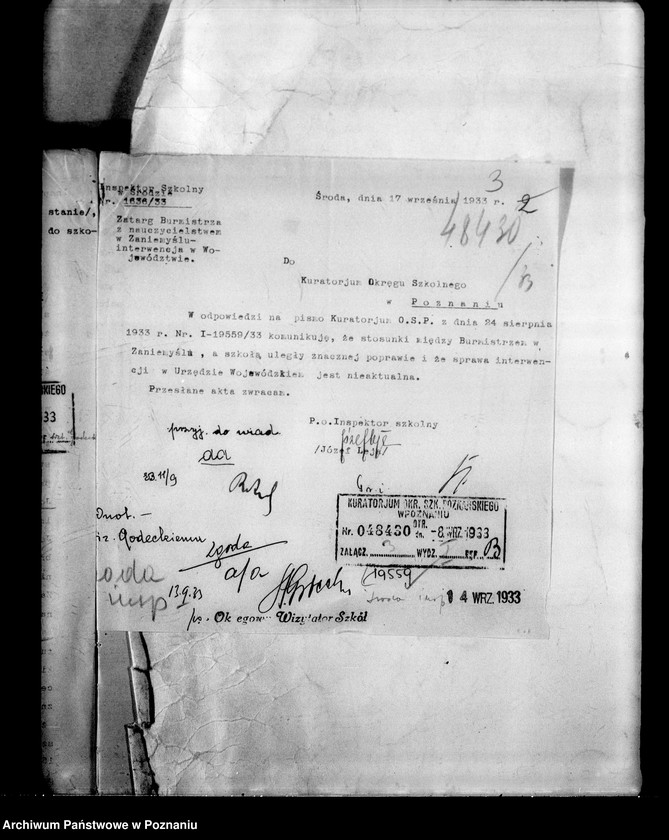 stanie/,
do szko-
Inspektor Szkolny
w Środzie
Nr. 1636/33
Środa, dnia 17 września 1933 r.
3
2
48430
Zatarg Burmistrza
z nauczycielstwem
w Zaniemyślu-
interwencja w Wo-
jewództwie.
Do
Kuratorjum Okręgu Szkolnego
w Poznaniu
W odpowiedzi na pismo Kuratorjum O.S.P. z dnia 24 sierpnia
1933 r. Nr. I-19559/33 komunikuję, że stosunki między Burmistrzem w
Zaniemyślu , a szkołą uległy znacznej poprawie i że sprawa interwen-
cji w Urzędzie Wojewódzkiem jest nieaktualna.
Przesłane akta zwracam.
P.o.Inspektor szkolny
przyj. do wiad
aa
11/9
KIEGO
33
KURATORJUM OKR. SZK. POZNAŃSKIEGO
W POZNANIU
Nr. 048430 OTR. dn. -8. WRZ. 1933
ZAŁĄCZ. 3 WYDZ. I REF. B
Godeckiemu
zgoda
a/a
13.9.33
19559
Środa insp
14 WRZ. 1933
Okręgowy Wizytator Szkół
Archiwum Państwowe w Poznaniu